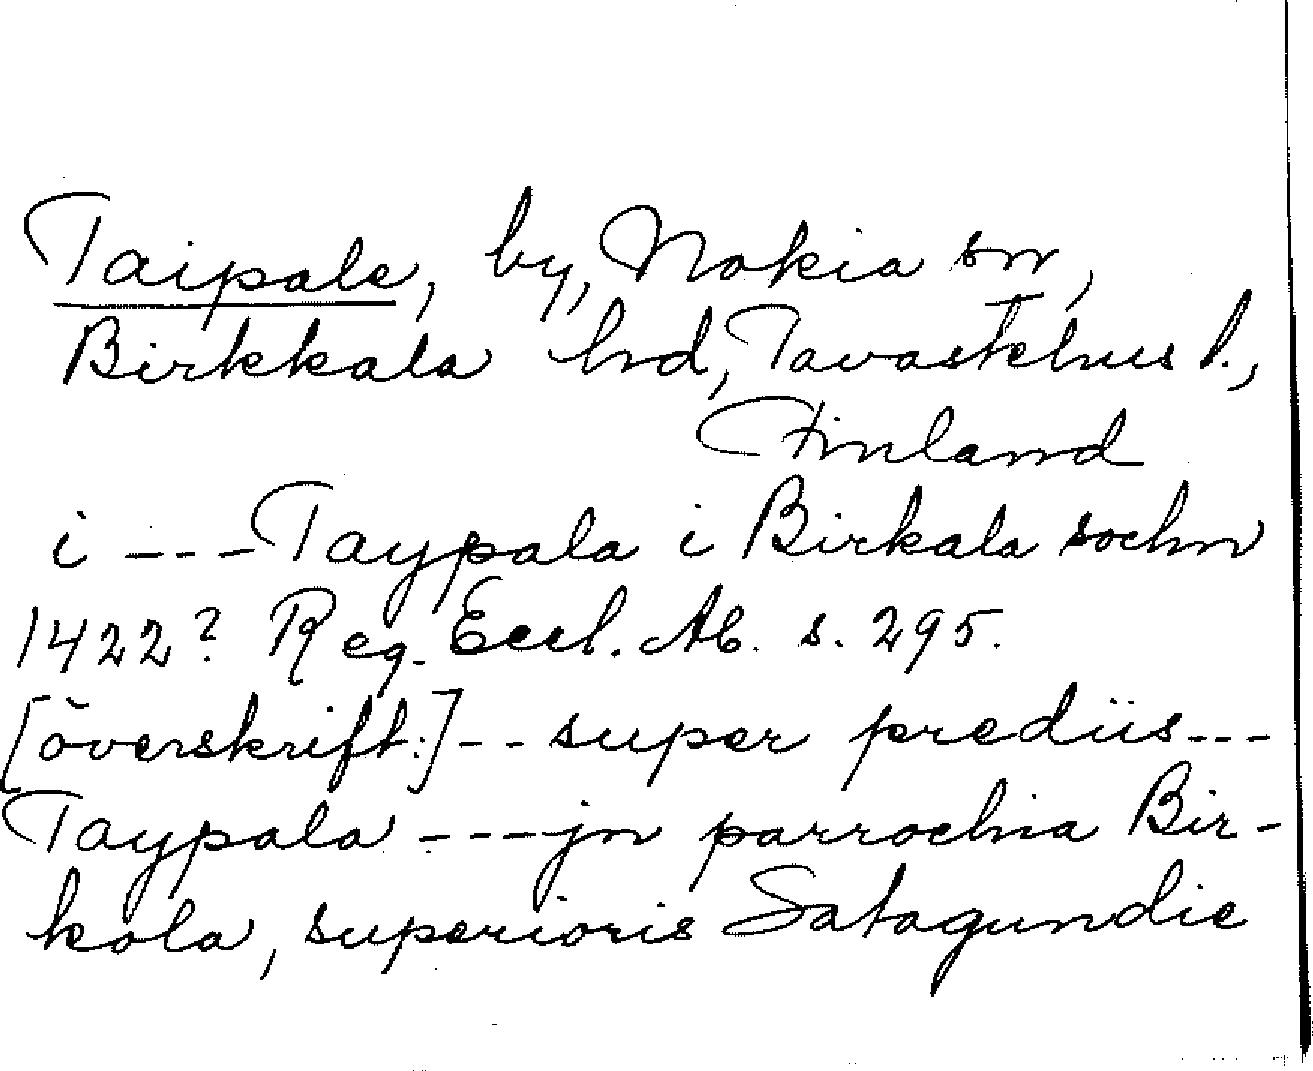 Taipale, by, Nokia sn,
Birkkala hd, Tavastehus l.,
Finland
i --- Taypala i Birkala sochn
1422? Reg. Eccl. Ab. s. 295.
[överskrift:] -- super prediis ---
Taypala --- jn parrochia Bir-
kala, superioris Satagundie